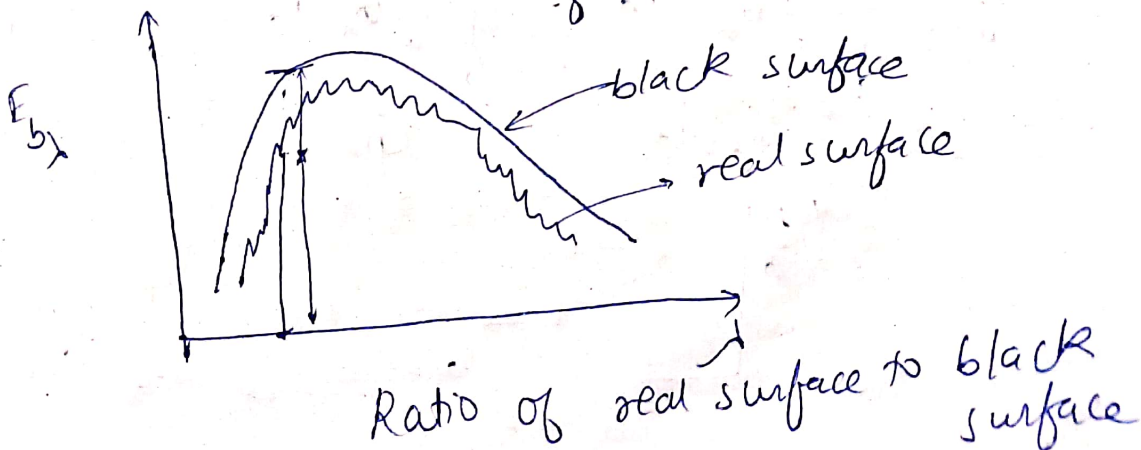 black surface
E_bλ
real surface
λ
Ratio of real surface to black
surface